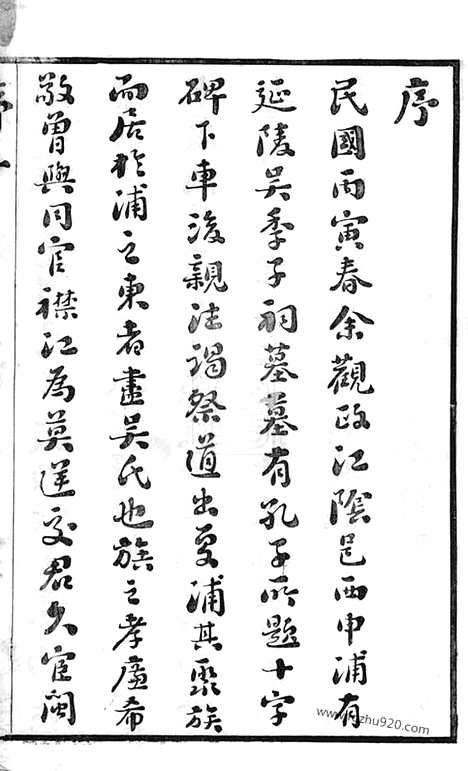 序
民國丙寅春余觀政江陰邑西申浦有
延陵吳季子祠墓墓有孔子所題十字
碑下車後親往謁祭道出夏浦其聚族
而居於浦之東者盡吳氏也族之孝廉希
敬曾與同官襟江為莫逆交君久宦閩
zhu920.com